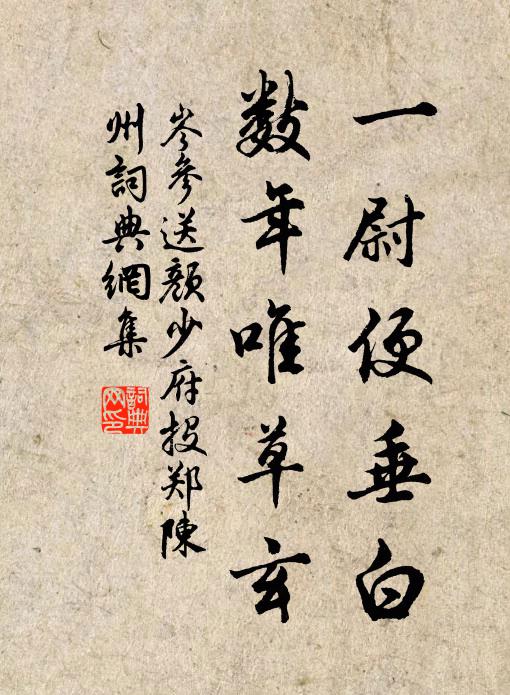 一尉便垂白
数年唯草玄
岑参送颜少府投郑陳
州詞典網集
詞典
网印